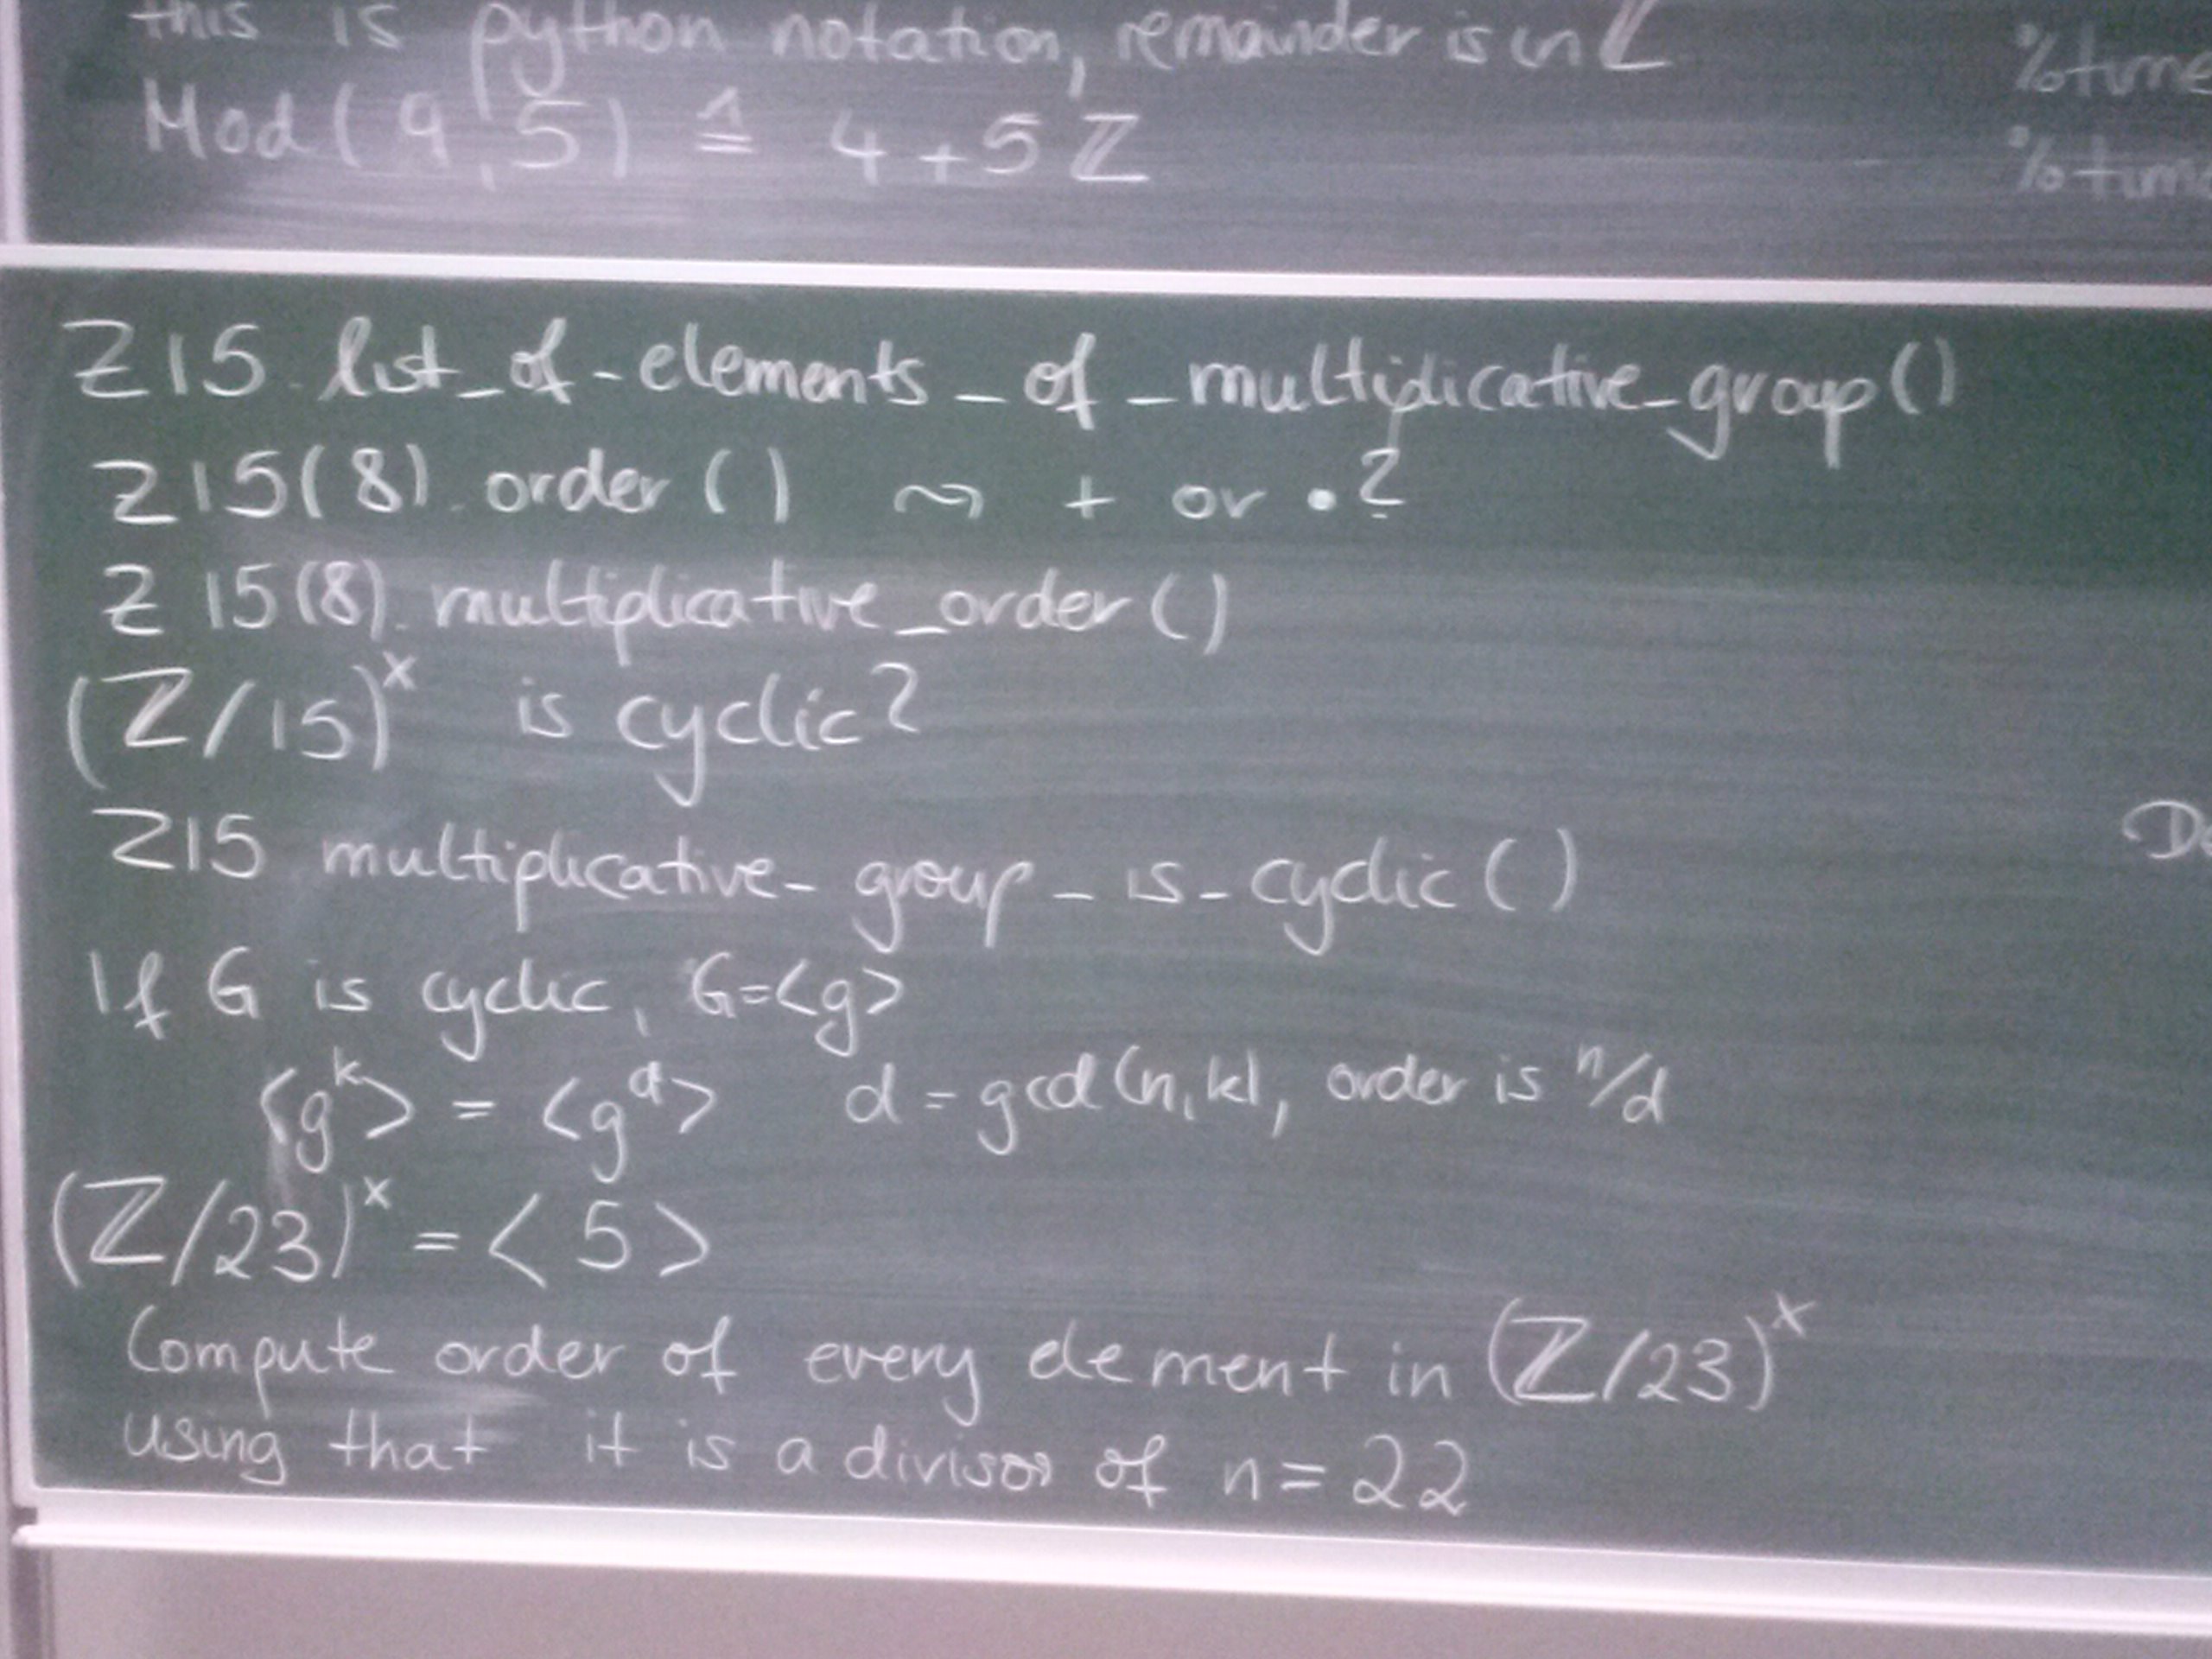 this is python notation, remainder is in Z
Mod(9,5) ≙ 4+5Z
%time
%time
Z15.list_of_elements_of_multiplicative_group()
Z15(8).order() ⤳ + or •?
Z15(8).multiplicative_order()
(Z/15)^x is cyclic?
Z15 multiplicative_group_is_cyclic()
If G is cyclic, G=<g>
<g^k> = <g^d> d = gcd(n,k), order is n/d
(Z/23)^x = <5>
Compute order of every element in (Z/23)^x
using that it is a divisor of n=22